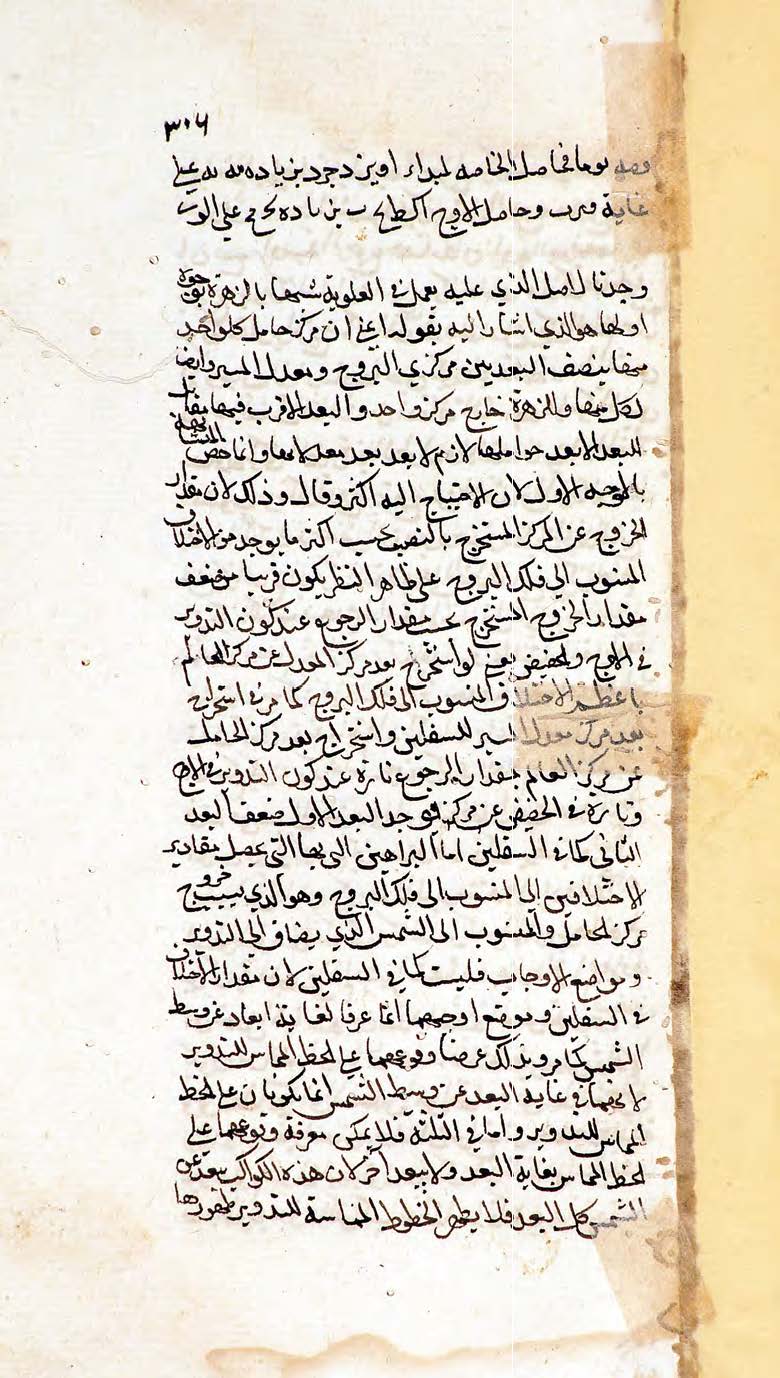 ٣٠٦
يوما فحاصل الخاصه لمبداء او يزدجرد بزياده على
غاية وحاصل الاوج بزياده على
وجدنا الاصل الذي عليه يعمل في العلوية شبيها بالزهرة بوجوه
اولها هو الذي اشار اليه بقوله اعني ان مركز حامل كل واحد
منها ينصف البعد بين مركزي البروج ومعدل المسير وايضا
لكل منها والزهرة خارج مركز واحد والبعد الاقرب فيها مقابل
للبعد الابعد حواملها لازم لابعد بعد وانما خص
بالوجه الاول لان الاحتياج اليه اكثر وقال وذلك لان مقدار
الخروج عن المركز المستخرج بالتقريب بحسب اكثر ما يوجد من الاختلاف
المنسوب الى فلك البروج على ظاهر النظر يكون قريبا من ضعف
مقدار الخروج المستخرج بحسب مقدار الرجوع عند كون التدوير
في الاوج والحضيض يعني لو استخرج بعد مركز المعدل عن مركز العالم
باعظم الاختلاف المنسوب الى فلك البروج كما مر في استخراج
بعد مركز معدل المسير للسفليين واستخراج بعد مركز الحامل
عن مركز العالم بمقدار الرجوع تارة عند كون التدوير في الاوج
وتارة في الحضيض عن مركز فوجد البعد الاول ضعف البعد
الثاني كما في السفليين اما البراهين التي بها التي يحصل مقادير
الاختلافين الى المنسوب الى فلك البروج وهو الذي بسبب خروج
مركز الحامل والمنسوب الى الشمس الذي يضاف الى التدوير
ومواضع الاوجات فليست كما في السفليين لان مقدار الاختلاف
في السفليين وموضع اوجهما انما عرفا لغاية ابعاد عن وسط
الشمس كما مر وبذلك عرضا وقوعهما على الخط المماس للتدوير
لانهما في غاية البعد عن وسط الشمس انما يكونان على الخط
المماس للتدوير واما في الثلثة فلا يمكن معرفة وقوعها على
الخط المماس بغاية البعد ولا ببعد آخر لان هذه الكواكب تبعد عن
الشمس كل البعد فلا يظهر الخطوط المماسة للتدوير ظهورها